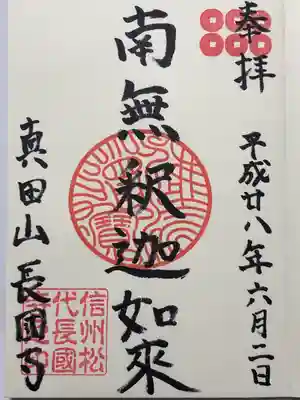 奉拝
平成廿八年六月二日
南無釈迦如來
真田山長國寺
信州松
代長國